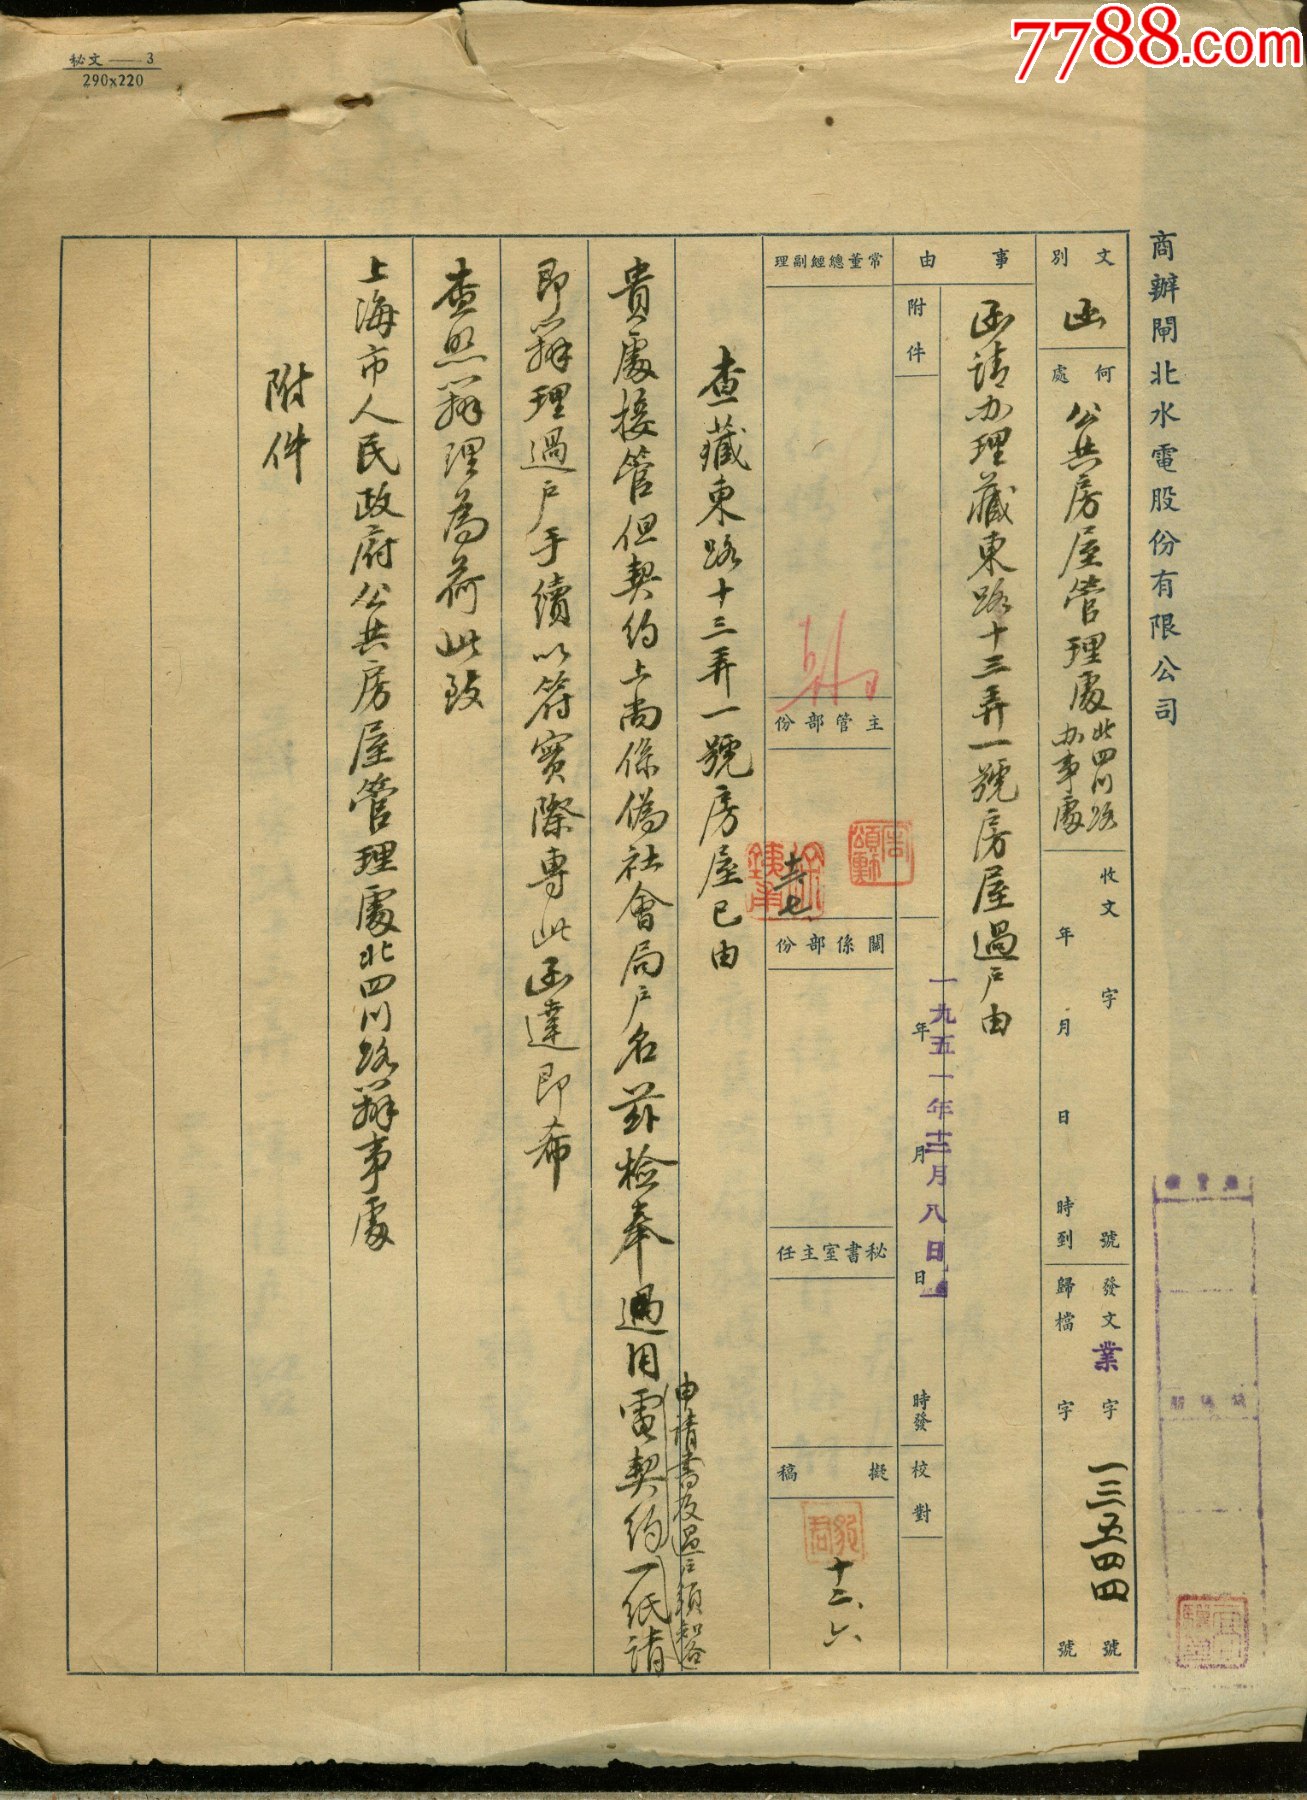 7788.com
秘文——3
290x220
商辦閘北水電股份有限公司
文別
函
何處
公共房屋管理處北四川路
办事處
收文 字 號
年 月 日 時到
發文 業 字 一三五四四 號
歸檔 字 號
事由
函請办理藏東路十三弄一號房屋過户由
附件
一九五一年十二月八日
年 月 日 時發
校對
常董總經副理
主管部份
十二、七
關係部份
秘書室主任
擬稿
十二、六
查藏東路十三弄一號房屋已由
貴處接管但契約上尚係偽社會局户名茲檢奉過用電契約一紙請
申請書及過户須知各
即辦理過户手續以符實際專此函達即希
查照辦理為荷此致
上海市人民政府公共房屋管理處北四川路辦事處
附件